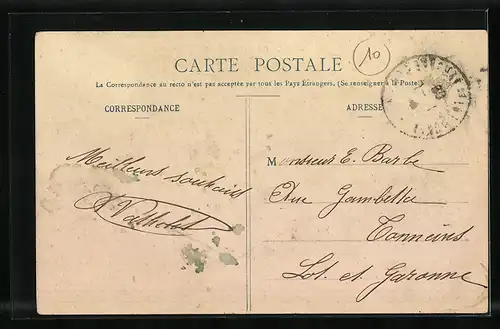 CARTE POSTALE
10
La Correspondance au recto n'est pas acceptée par tous les Pays Etrangers. (Se renseigner à la Poste)
CORRESPONDANCE
ADRESSE
Meilleurs souhaits
Monsieur E. Barbe
Rue Gambetta
Tonneins
Lot et Garonne